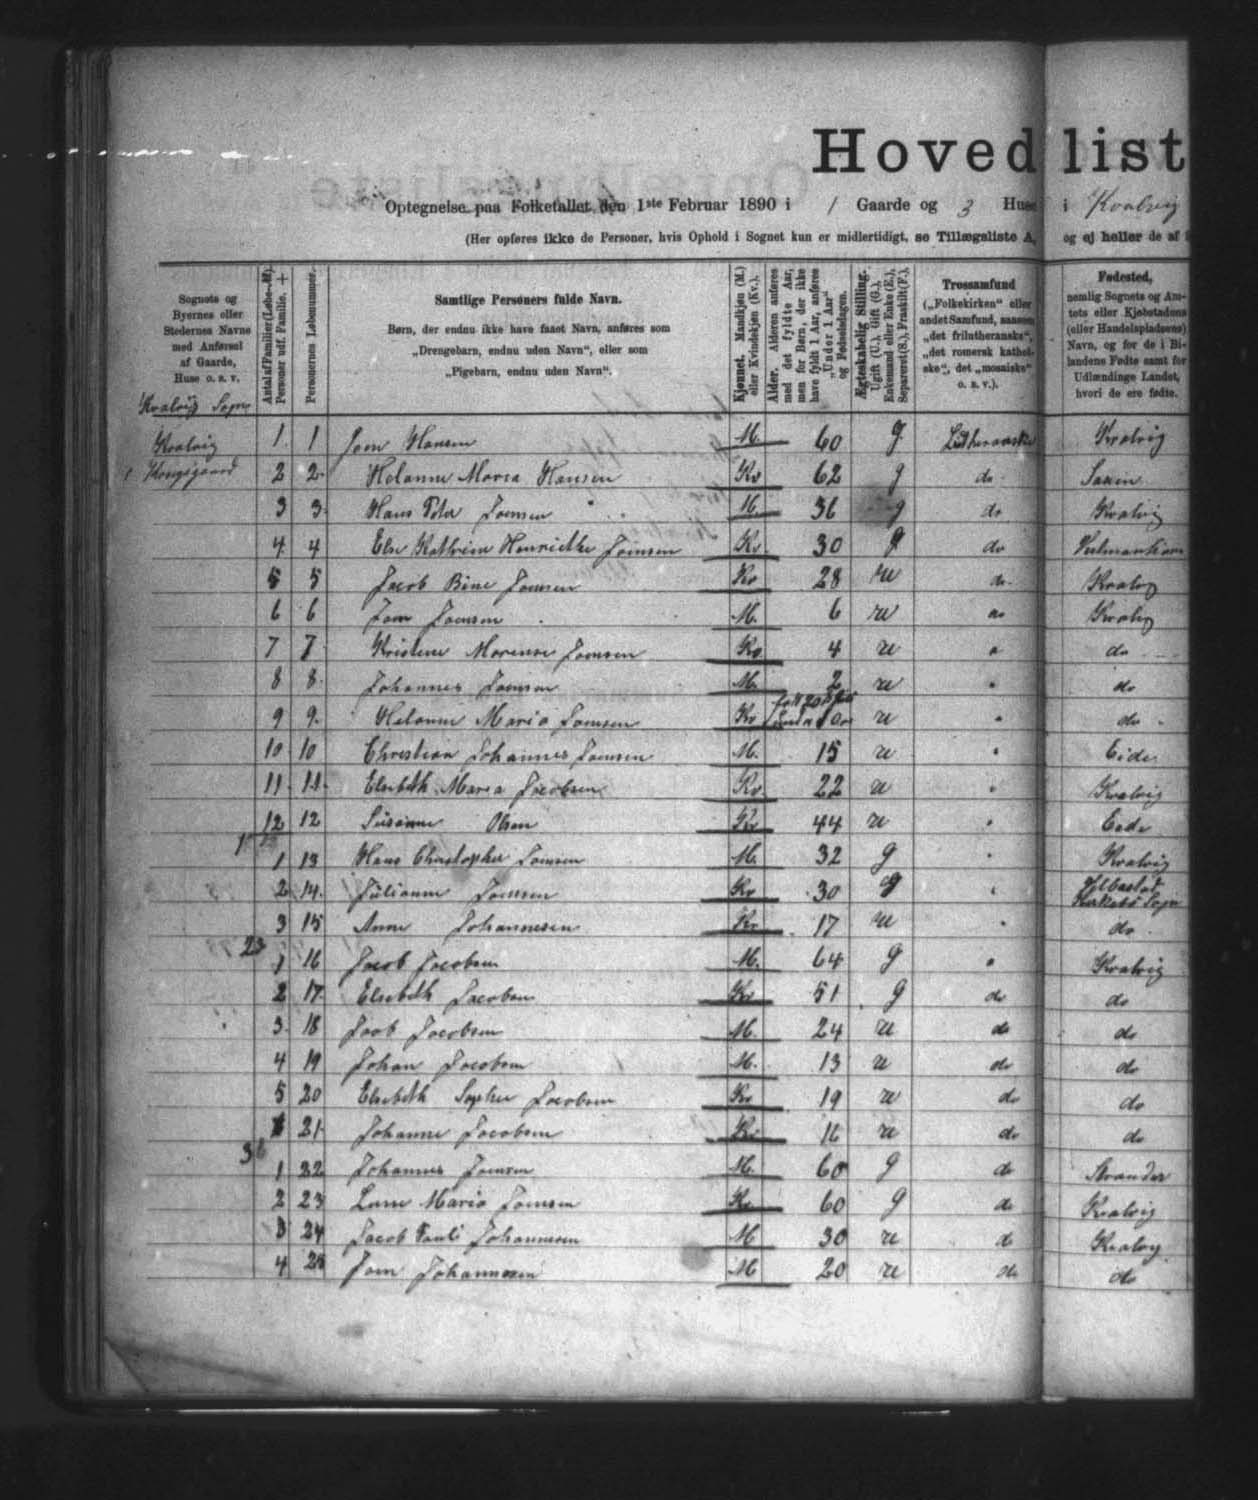 Hovedlist
Optegnelse paa Folketallet den 1ste Februar 1890 i 1 Gaarde og 3 Huse i Kvalvig
(Her opføres ikke de Personer, hvis Ophold i Sognet kun er midlertidigt, se Tillægsliste A, og ej heller de af
Sognets og Byernes eller Stedernes Navne med Anførsel af Gaarde, Huse o. s. v.
Antal af Familier (Løbe-№). Personer udf. Familie.
Personernes Løbenummer.
Samtlige Personers fulde Navn.
Børn, der endnu ikke have faaet Navn, anføres som
„Drengebarn, endnu uden Navn", eller som
„Pigebarn, endnu uden Navn".
Kjønnet. Mandkjøn (M.) eller Kvindekjøn (Kv.).
Alder. Alderen anføres med det fyldte Aar, men for Børn, der ikke have fyldt 1 Aar, anføres „Under 1 Aar" og Fødselsdagen.
Ægteskabelig Stilling. Ugift (U.), Gift (G.), Enkemand eller Enke (E.), Separeret (S.), Fraskilt (F.).
Trossamfund
(„Folkekirken" eller andet Samfund, saasom „det frilutheranske", „det romersk katholske", det „mosaiske" o. s. v.).
Fødested,
nemlig Sognets og Amtets eller Kjøbstadens (eller Handelspladsens) Navn, og for de i Bilandene Fødte samt for Udlændinge Landet, hvori de ere fødte.
Kvalvig Sogn
Kvalvig 1 1 Joen Hansen M. 60 g Lutheranske Kvalvig
Kongsgaard 2 2 Helanne Maria Hansen Kv 62 g do
3 3 Hans Peter Joensen M. 36 g do Kvalvig
4 4 Else Kathrine Henriette Joensen Kv. 30 g do
5 5 Jacob Bine Joensen Kv 28 u do Kvalvig
6 6 Joen Joensen M. 6 u do Kvalvig
7 7 Kristene Morense Joensen Kv 4 u do
8 8 Johannes Joensen M. 2 u do
9 9 Helanne Maria Joensen Kv u do
10 10 Christian Johannes Joensen M. 15 u Eide
11 11 Elsebeth Maria Jacobsen Kv 22 u Kvalvig
12 12 Susanne Olsen Kv 44 u Eide
1 13 Hans Christopher Joensen M. 32 g Kvalvig
2 14 Julianne Joensen Kv. 30 g Sogn
3 15 Anne Johannesen Kv. 17 u do
1 16 Jacob Jacobsen M. 64 g Kvalvig
2 17 Elsebeth Jacobsen Kv 51 g do do
3 18 Jacob Jacobsen M. 24 u do do
4 19 Johan Jacobsen M. 13 u do do
5 20 Elsebeth Sophie Jacobsen Kv 19 u do do
21 Johanne Jacobsen Kv 16 u do do
1 22 Johannes Joensen M. 60 g do Strander
2 23 Maria Joensen Kv. 60 g do Kvalvig
3 24 Jacob Pauli Johannesen M 30 u do Kvalvig
4 25 Joen Johannesen M 20 u do do